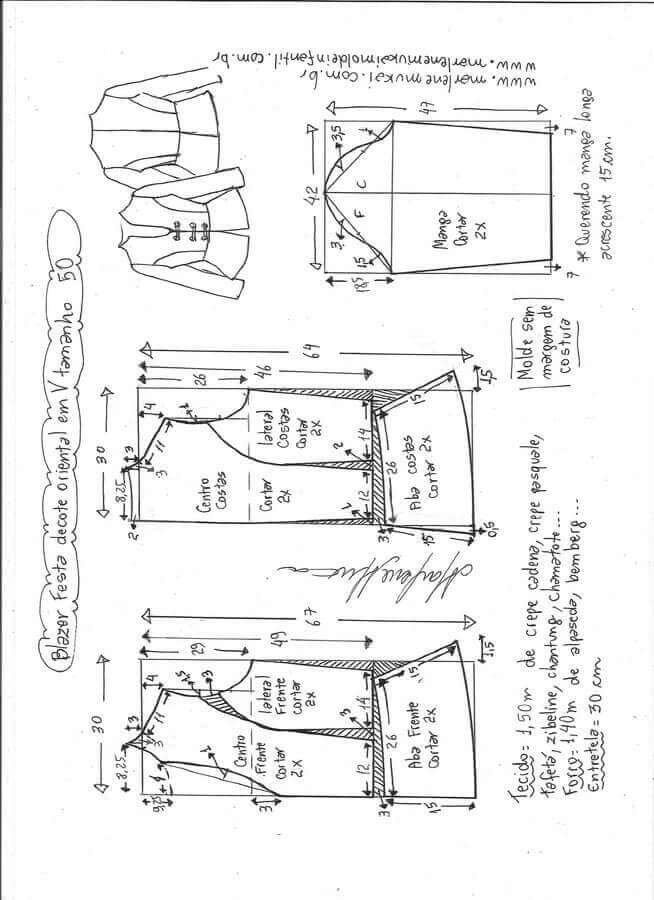 Blazer Festa decote oriental em V tamanho 50
www.marlenemukai.com.br
www.marlenemukaimoldeinfantil.com.br
30
8,25
3
3
4
11
9,25
4
1,5
3
2
29
49
67
Centro
Frente
Cortar
2x
lateral
Frente
cortar
2x
3
12
3
14
3
26
15
Aba Frente
Cortar 2x
15
1,5
30
8,25
2
3
3
4
11
26
46
64
Centro
Costas
Cortar
2x
lateral
Costas
Cortar
2x
2
12
2
14
3
26
15
Aba costas
Cortar 2x
15
0,5
1,5
42
47
18,5
3
3,5
1,5
1
F
C
Manga
Cortar
2x
7
7
* Querendo manga longa
acrescente 15 cm.
Molde sem
margem de
costura
Tecido= 1,50m de crepe cadena, crepe pasquale,
tafetá, zibeline, chantung, chamatote...
Forro= 1,40m de alpaseda, bemberg...
Entretela= 30 cm